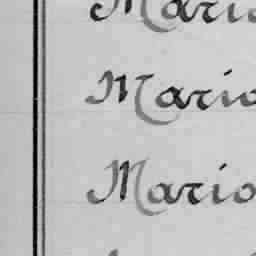 Mario
Mario
Mario